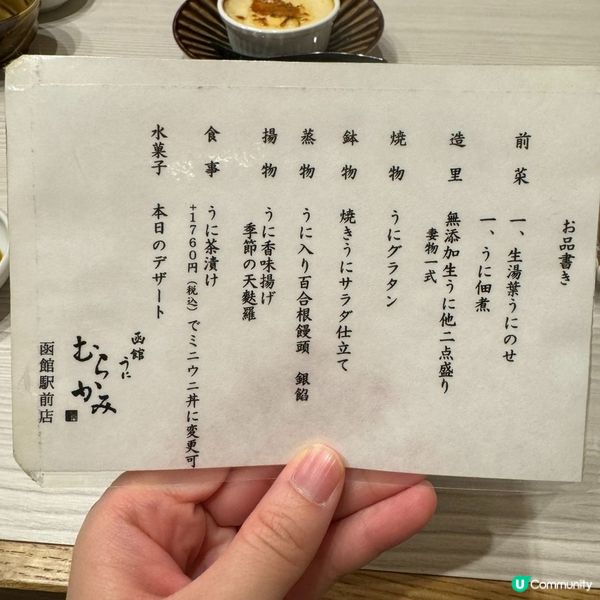 お品書き
前菜
一、生湯葉うにのせ
一、うに佃煮
造里
無添加生うに他二点盛り
妻物一式
焼物
うにグラタン
鉢物
焼きうにサラダ仕立て
蒸物
うに入り百合根饅頭 銀餡
揚物
うに香味揚げ
季節の天麩羅
食事
うに茶漬け
+1760円(税込)でミニウニ丼に変更可
水菓子
本日のデザート
函館
うに
むらかみ
函館駅前店
U Community